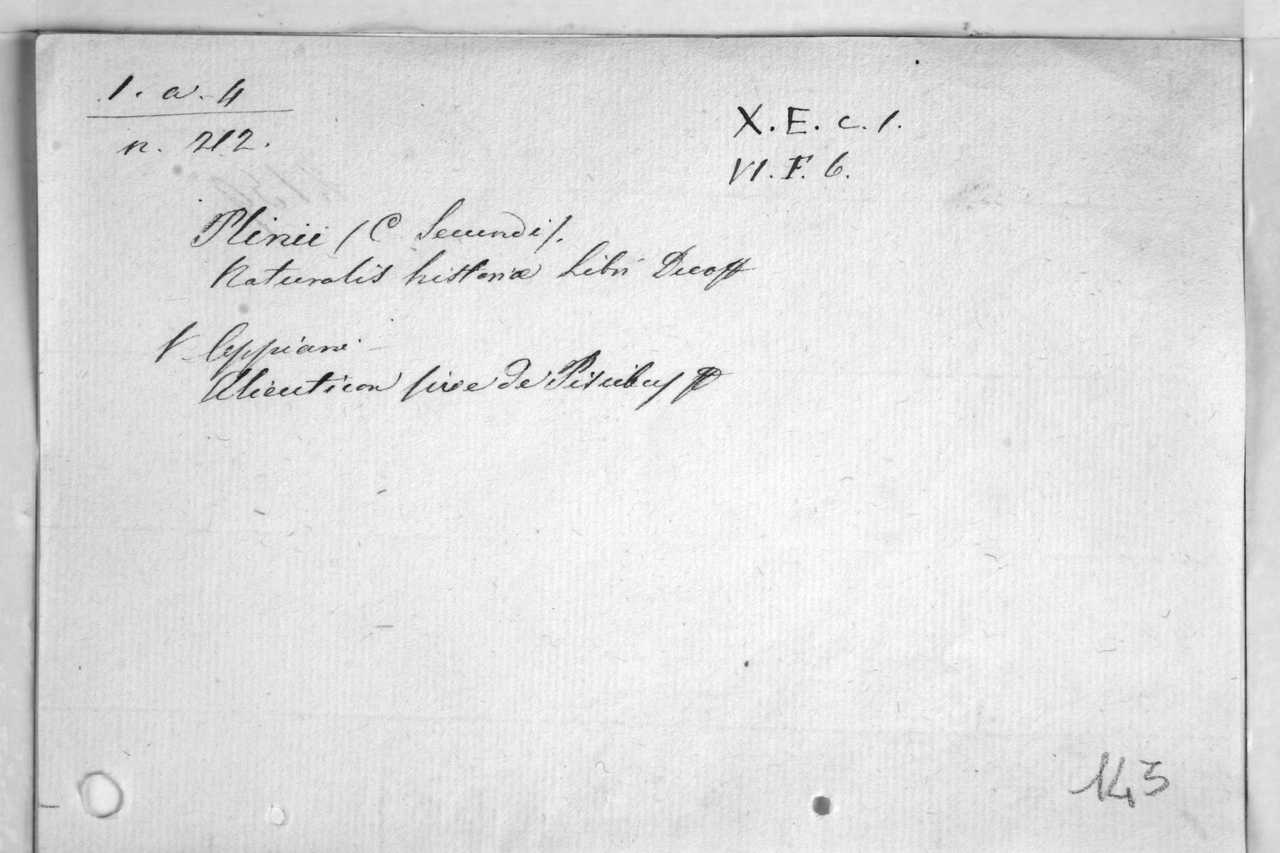 1. a. 4
n. 212.
X. E. c. 1.
VI. F. 6.
Plinii /C Secundi/.
Naturalis historiæ Libri
V Oppiani
Alieuticon sive de Piscibus
143